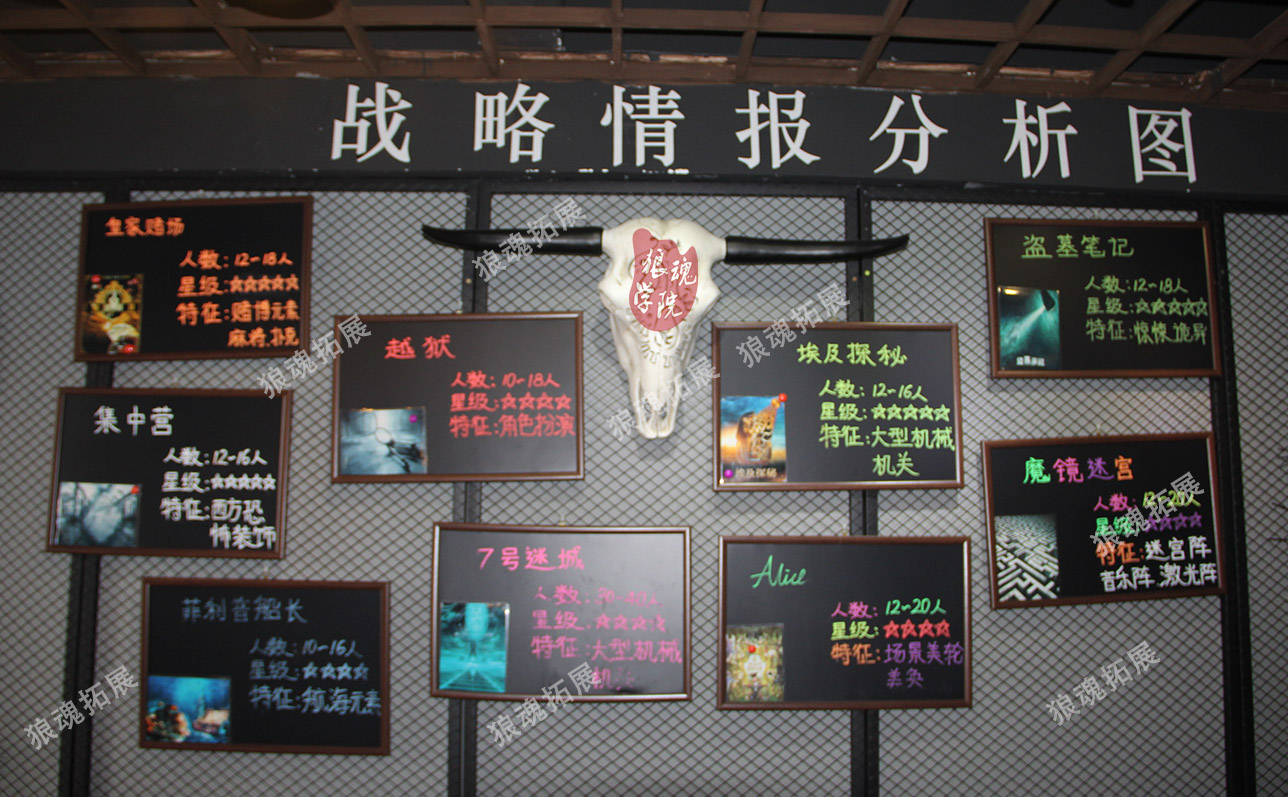 战略情报分析图
皇家赌场
人数:12~18人
星级:☆☆☆☆☆
特征:赌博元素
麻将.扑克
越狱
人数:10-18人
星级:☆☆☆☆
特征:角色扮演
狼魂
学院
埃及探秘
人数:12~16人
星级:☆☆☆☆☆
特征:大型机械
机关
埃及探秘
盗墓笔记
人数:12~18人
星级:☆☆☆☆☆
特征:惊悚诡异
集中营
人数:12~16人
星级:☆☆☆☆☆
特征:西方恐
怖装饰
魔镜迷宫
人数:12~20人
星级:☆☆☆☆
特征:迷宫阵
音乐阵.激光阵
菲利普船长
人数:10-16人
星级:☆☆☆☆
特征:航海元素
7号迷城
人数:
星级:☆☆☆☆
特征:大型机械
机关
Alice
人数:12~20人
星级:☆☆☆☆
特征:场景美轮
美奂
狼魂拓展
狼魂拓展
狼魂拓展
狼魂拓展
狼魂拓展
狼魂拓展
狼魂拓展
狼魂拓展